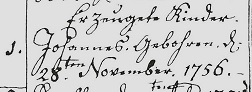 Erzeugete Kinder.
1. Johannes. Gebohren. d:
28ten November, 1756.